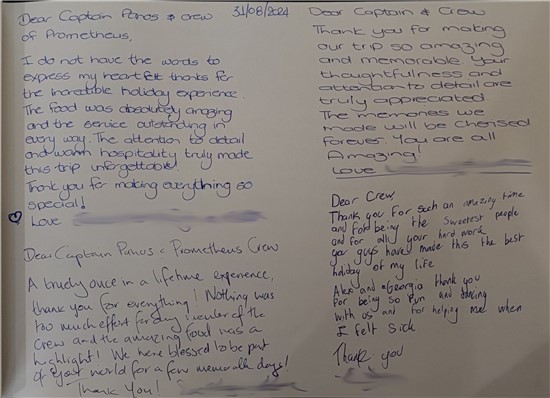 Dear Captain Panos & crew
of Prometheus,
31/08/2024
I do not have the words to
express my heartfelt thanks for
the incredible holiday experience.
The food was absolutely amazing
and the service outstanding in
every way. The attention to detail
and warm hospitality truly made
this trip unforgettable!
Thank you for making everything so
special!
Love
Dear Captain Panos & Prometheus Crew
A truely once in a lifetime experience,
thank you for everything! Nothing was
too much effort for any member of the
crew and the amazing food was a
highlight! We were blessed to be part
of your world for a few memorable days!
Thank You!
Dear Captain & Crew
Thank you for making
our trip so amazing
and memorable. Your
thoughtfulness and
attention to detail are
truly appreciated.
The memories we
made will be cherised
forever. You are all
Amazing!
Love
Dear Crew
Thank you for such an amazing time
and for being the sweetest people
and for all your hard work
you guys have made this the best
holiday of my life
Alex and Georgia thank you
for being so fun and dancing
with us and for helping me when
I felt sick
Thank you